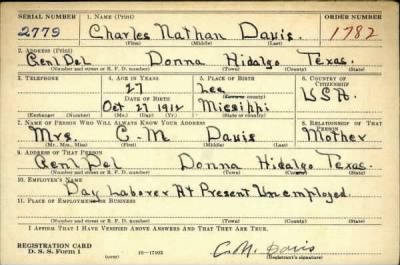 SERIAL NUMBER 1. NAME (Print) ORDER NUMBER
2779 Charles Nathan Davis. 1782
(First) (Middle) (Last)
2. ADDRESS (Print)
Genl Del Donna Hidalgo Texas.
(Number and street or R. F. D. number) (Town) (County) (State)
3. TELEPHONE 4. AGE IN YEARS 5. PLACE OF BIRTH 6. COUNTRY OF CITIZENSHIP
27 Lee
DATE OF BIRTH (Town or county) U.S.A.
Oct 27 1912 Missippi
(Exchange) (Number) (Mo.) (Day) (Yr.) (State or country)
7. NAME OF PERSON WHO WILL ALWAYS KNOW YOUR ADDRESS 8. RELATIONSHIP OF THAT PERSON
Mrs. C. M Davis Mother
(Mr., Mrs., Miss) (First) (Middle) (Last)
9. ADDRESS OF THAT PERSON
Genl Del Donna Hidalgo Texas.
(Number and street or R. F. D. number) (Town) (County) (State)
10. EMPLOYER'S NAME
Day Laborer At Present Unemployed.
11. PLACE OF EMPLOYMENT OR BUSINESS
(Number and street or R. F. D. number) (Town) (County) (State)
I AFFIRM THAT I HAVE VERIFIED ABOVE ANSWERS AND THAT THEY ARE TRUE.
REGISTRATION CARD
D. S. S. Form 1 (over) 16—17105 C. N. Davis
(Registrant's signature)